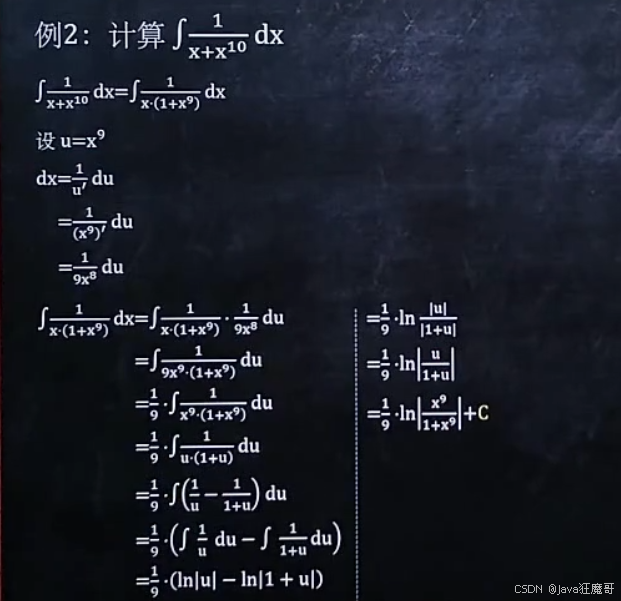 例2：计算 ∫ 1/(x+x¹⁰) dx
∫ 1/(x+x¹⁰) dx=∫ 1/(x·(1+x⁹)) dx
设 u=x⁹
dx=1/u′ du
=1/(x⁹)′ du
=1/(9x⁸) du
∫ 1/(x·(1+x⁹)) dx=∫ 1/(x·(1+x⁹)) · 1/(9x⁸) du
=∫ 1/(9x⁹·(1+x⁹)) du
=1/9 ·∫ 1/(x⁹·(1+x⁹)) du
=1/9 ·∫ 1/(u·(1+u)) du
=1/9 ·∫(1/u − 1/(1+u)) du
=1/9 ·(∫ 1/u du − ∫ 1/(1+u) du)
=1/9 ·(ln|u| − ln|1 + u|)
=1/9 ·ln |u|/|1+u|
=1/9 ·ln|u/(1+u)|
=1/9 ·ln|x⁹/(1+x⁹)|+C
CSDN @Java狂魔哥